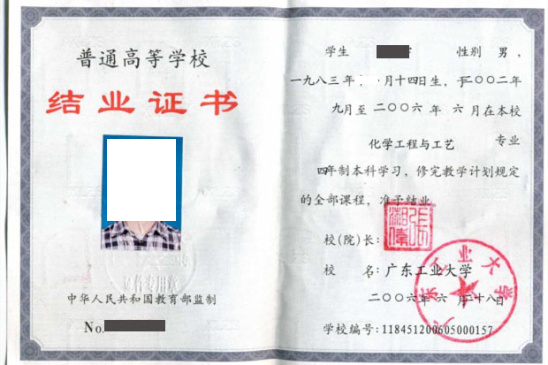 普通高等学校
结业证书
中华人民共和国教育部监制
No.
学生 性别 男，
一九八三年 月十四日生，于二〇〇二年
九月至二〇〇六年 六月在本校
化学工程与工艺 专业
四年制本科学习，修完教学计划规定
的全部课程，准予结业
校(院)长：
校 名：广东工业大学
二〇〇六年六月二十八日
学校编号：118451200605000157
广东工业大学